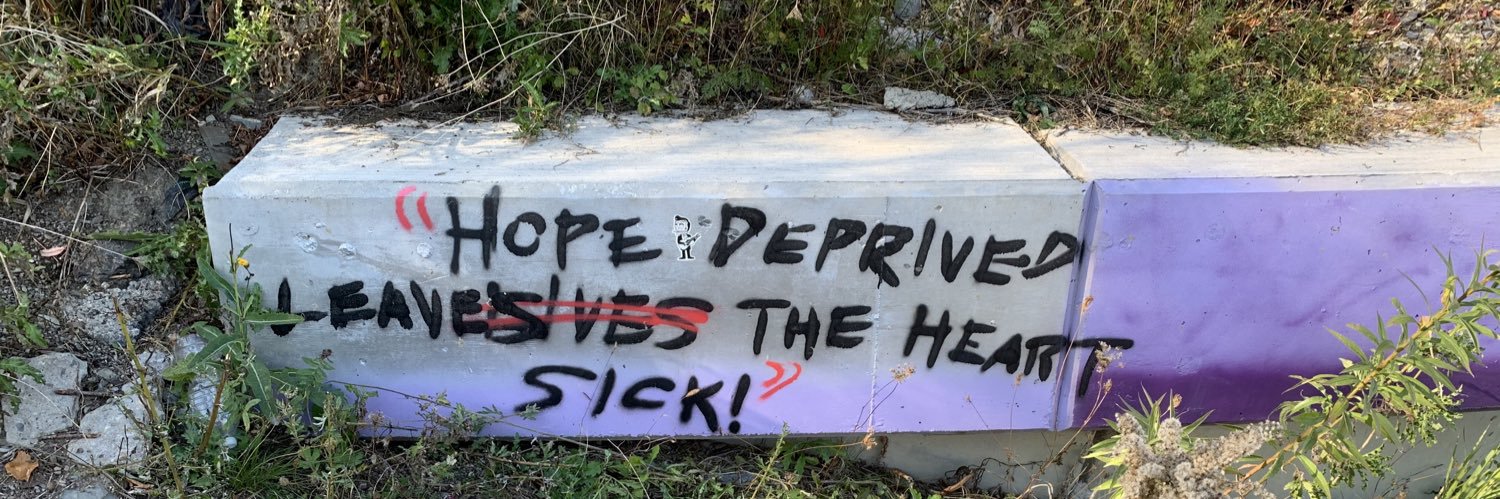 "HOPE DEPRIVED
LEAVESIVES THE HEART
SICK!"